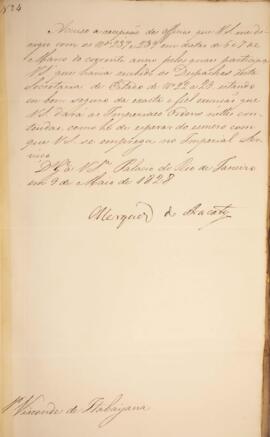 Nº 24
Accuso a recepção dos Officios que V.S. me di-
rigio com os Nºs 237, e 238 em datas de 6 e 7 de
Março do corrente anno pelos quaes participa
V.S. que havia recebido os Despachos desta
Secretaria de Estado de Nºs 22 e 23, estando
eu bem seguro da exacta e fiel execução que
V.S. dará as Imperiaes Ordens nelles con-
tidas, como he de esperar do
que V.S. se emprega no Imperial Ser-
viço.
Ds. Gde. a V.S. Palacio do Rio de Janeiro
em 9 de Maio de 1828
Marquez de Aracaty
Sr. Visconde de Itabayana